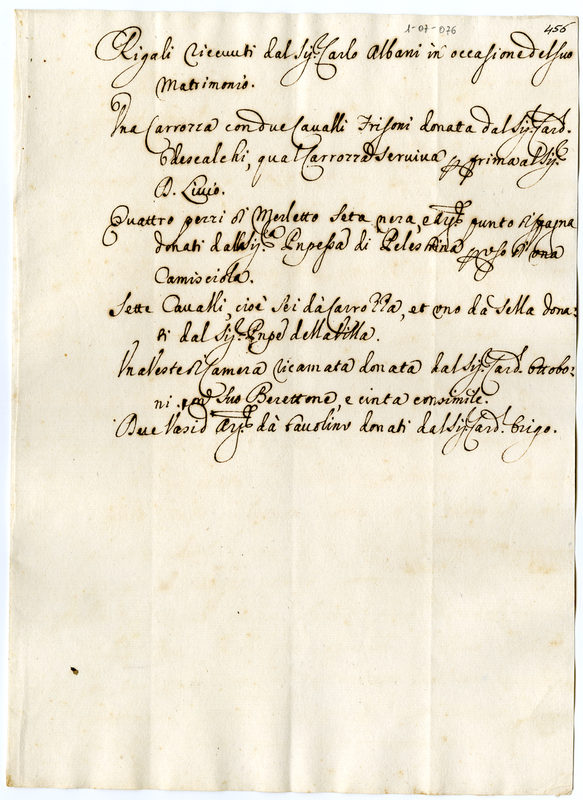 1-07-076
456
Rigali riceuuti dal Sig.r Carlo Albani in occasione del suo
Matrimonio.
Vna Carrozza con due Caualli Frisoni donata dal Sig.r Card.
Odescalchi, qual Carrozza seruiua prima al Sig.r
D. Liuio.
Quattro pezzi di Merletto seta nera, e arg.to punto di spagna
donati dalla Sig.ra Pnpessa di Pelestrina p uso d'una
Camisciola.
Sette Caualli, cioè sei dà Carrozza, et uno dà sella dona-
ti dal Sig.r Pnpe della
Vna Veste di Camera ricamata donata dal Sig.r Card. Ottobo-
ni con suo Berettone, e cinta consimile.
Due Vasi d'Arg.to dà tauolino donati dal Sig.r Card.